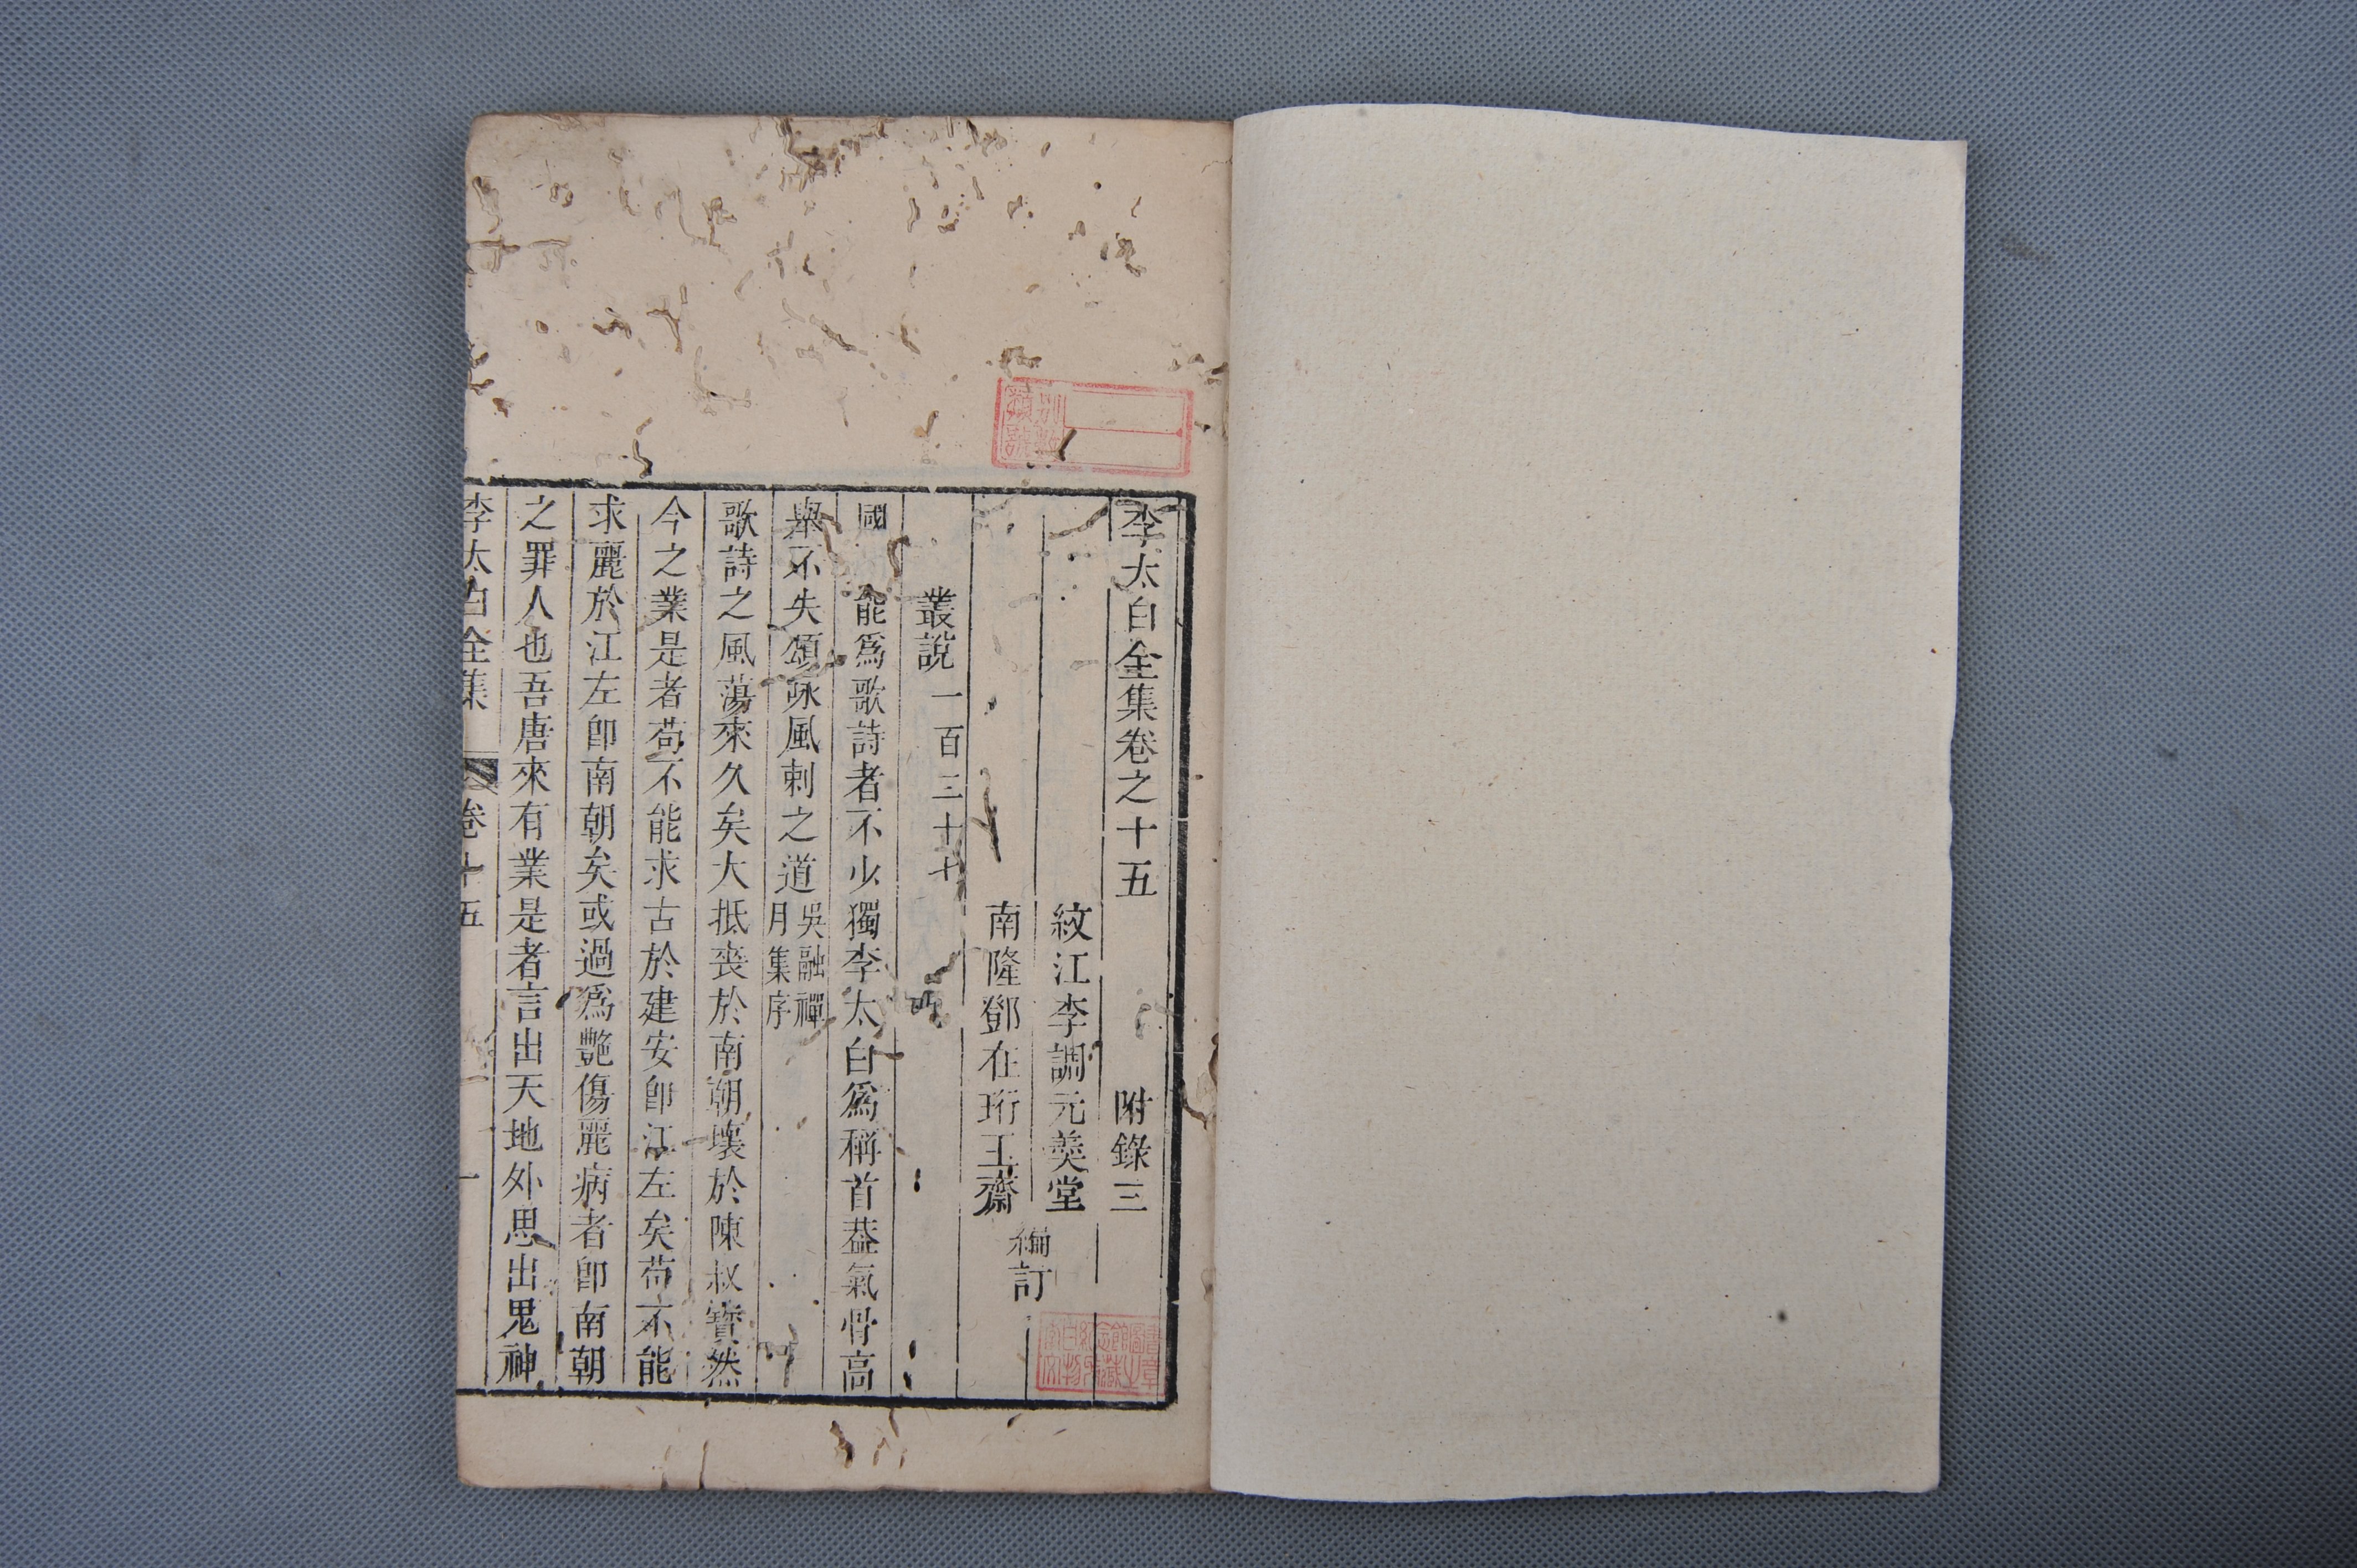 李太白全集卷之十五 附錄三
紋江李調元羹堂
南隆鄧在珩玉齋
編訂
叢說一百三十七
國 能爲歌詩者不少獨李太白爲稱首葢氣骨高
舉不失頌咏風刺之道吳融禪月集序
歌詩之風蕩來久矣大抵喪於南朝壞於陳叔寶然
今之業是者苟不能求古於建安卽江左矣苟不能
求麗於江左卽南朝矣或過爲艷傷麗病者卽南朝
之罪人也吾唐來有業是者言出天地外思出鬼神
李太白全集 卷十五 一